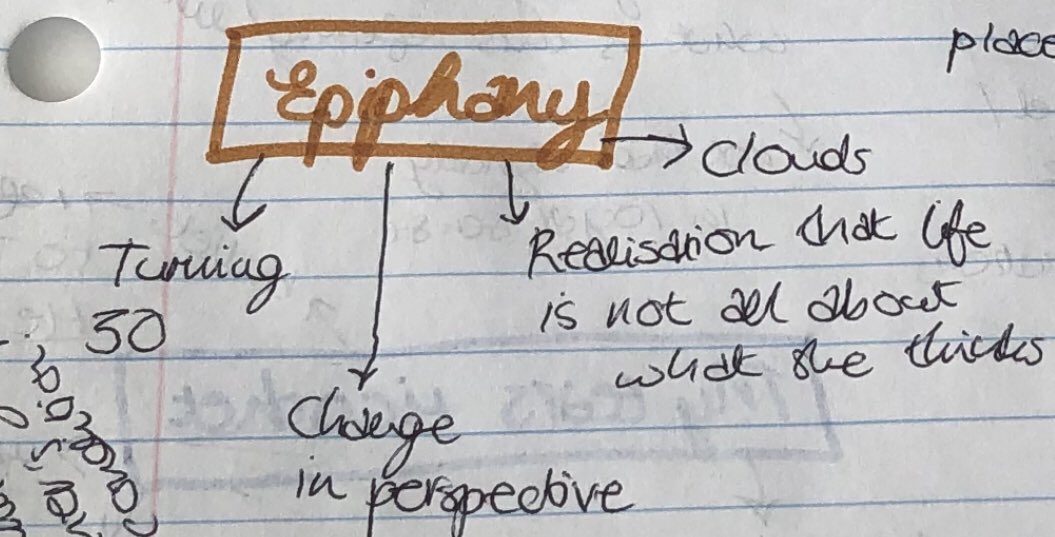 place
Epiphany
Clouds
Turning
50
Realisation that life
is not all about
what she thinks
Change
in perspective